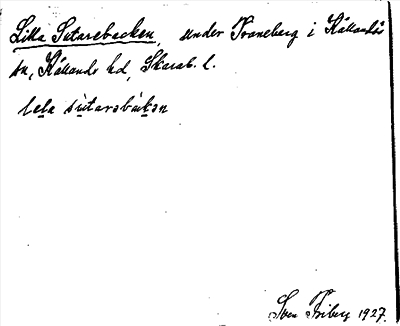 Lilla Sutarebacken, under Traneberg i Kållandsö
sn, Kållands hd, Skarab. l.
lela su̇tarabakən
Sven Friberg 1927.